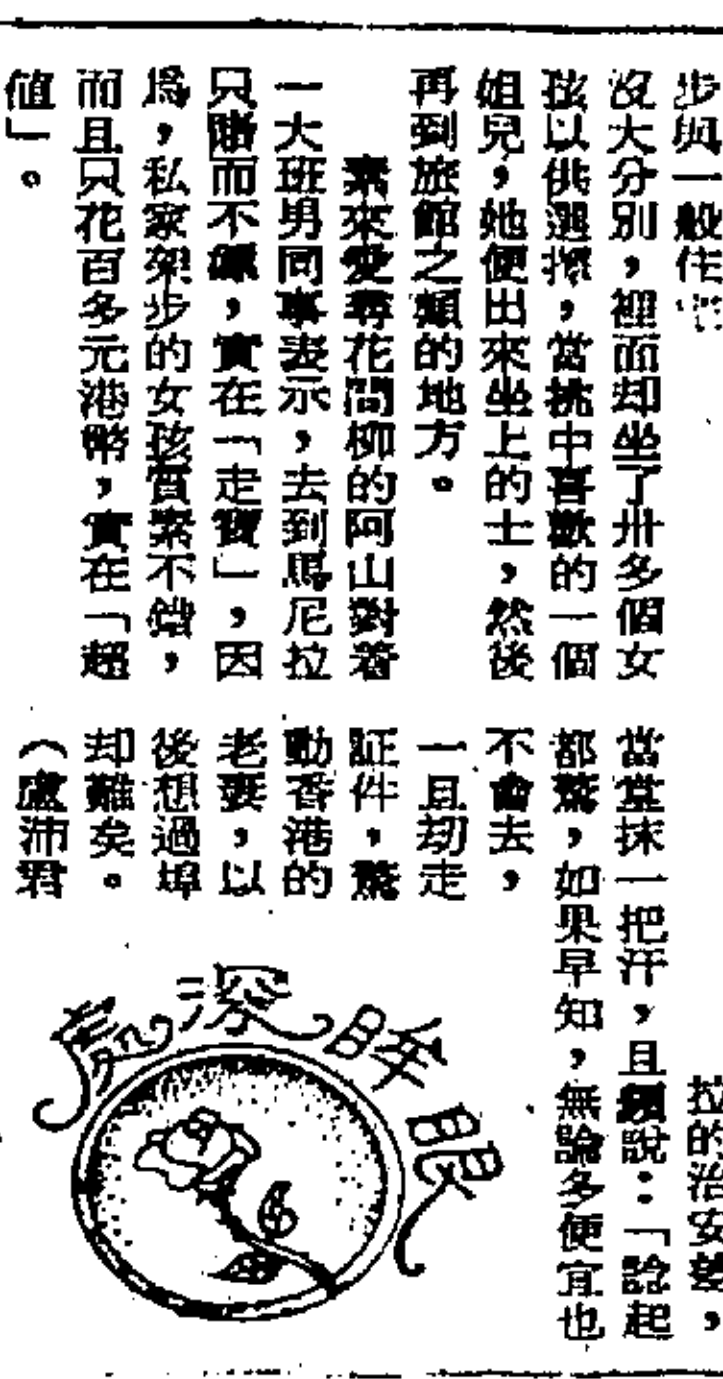 步與一般住
沒大分別，裡面却坐了卅多個女
孩以供選擇，當挑中喜歡的一個
姐兒，她便出來坐上的士，然後
再到旅館之類的地方。
素來愛尋花問柳的阿山對着
一大班男同事表示，去到馬尼拉
只賭而不嫖，實在「走寶」，因
爲，私家架步的女孩質素不錯，
而且只花百多元港幣，實在「超
值」。
拉的治安
當堂抹一把汗，且說：「諗起
都驚，如果早知，無論多便宜也
不會去，
一旦刧走
証件，驚
動香港的
老妻，以
後想過埠
却難矣。
（盧沛君
眼眸深處